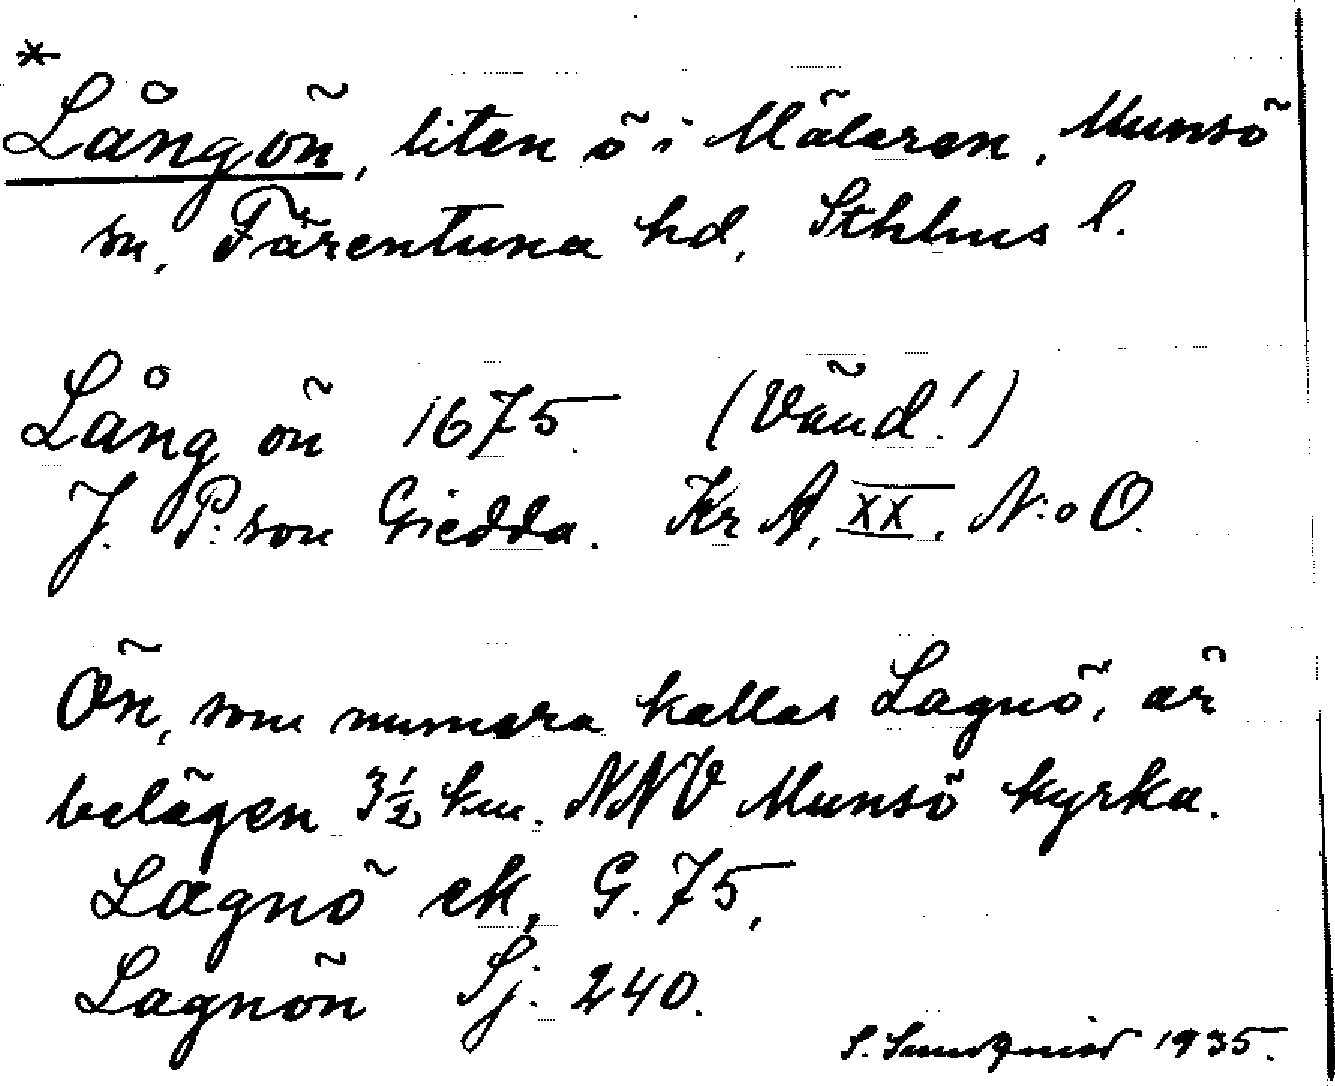 *
Långön, liten ö i Mälaren, Munsö
sn, Färentuna hd, Sthlms l.
Lång ön 1675. (Vänd!)
J. P:son Giedda. Kr A, XX, N:o O.
Ön, som numera kallas Lagnö, är
belägen 3½ km. NNV Munsö kyrka.
Lagnö ek, G. 75,
Lagnön Sj. 240.
S. Sundqvist 1935.